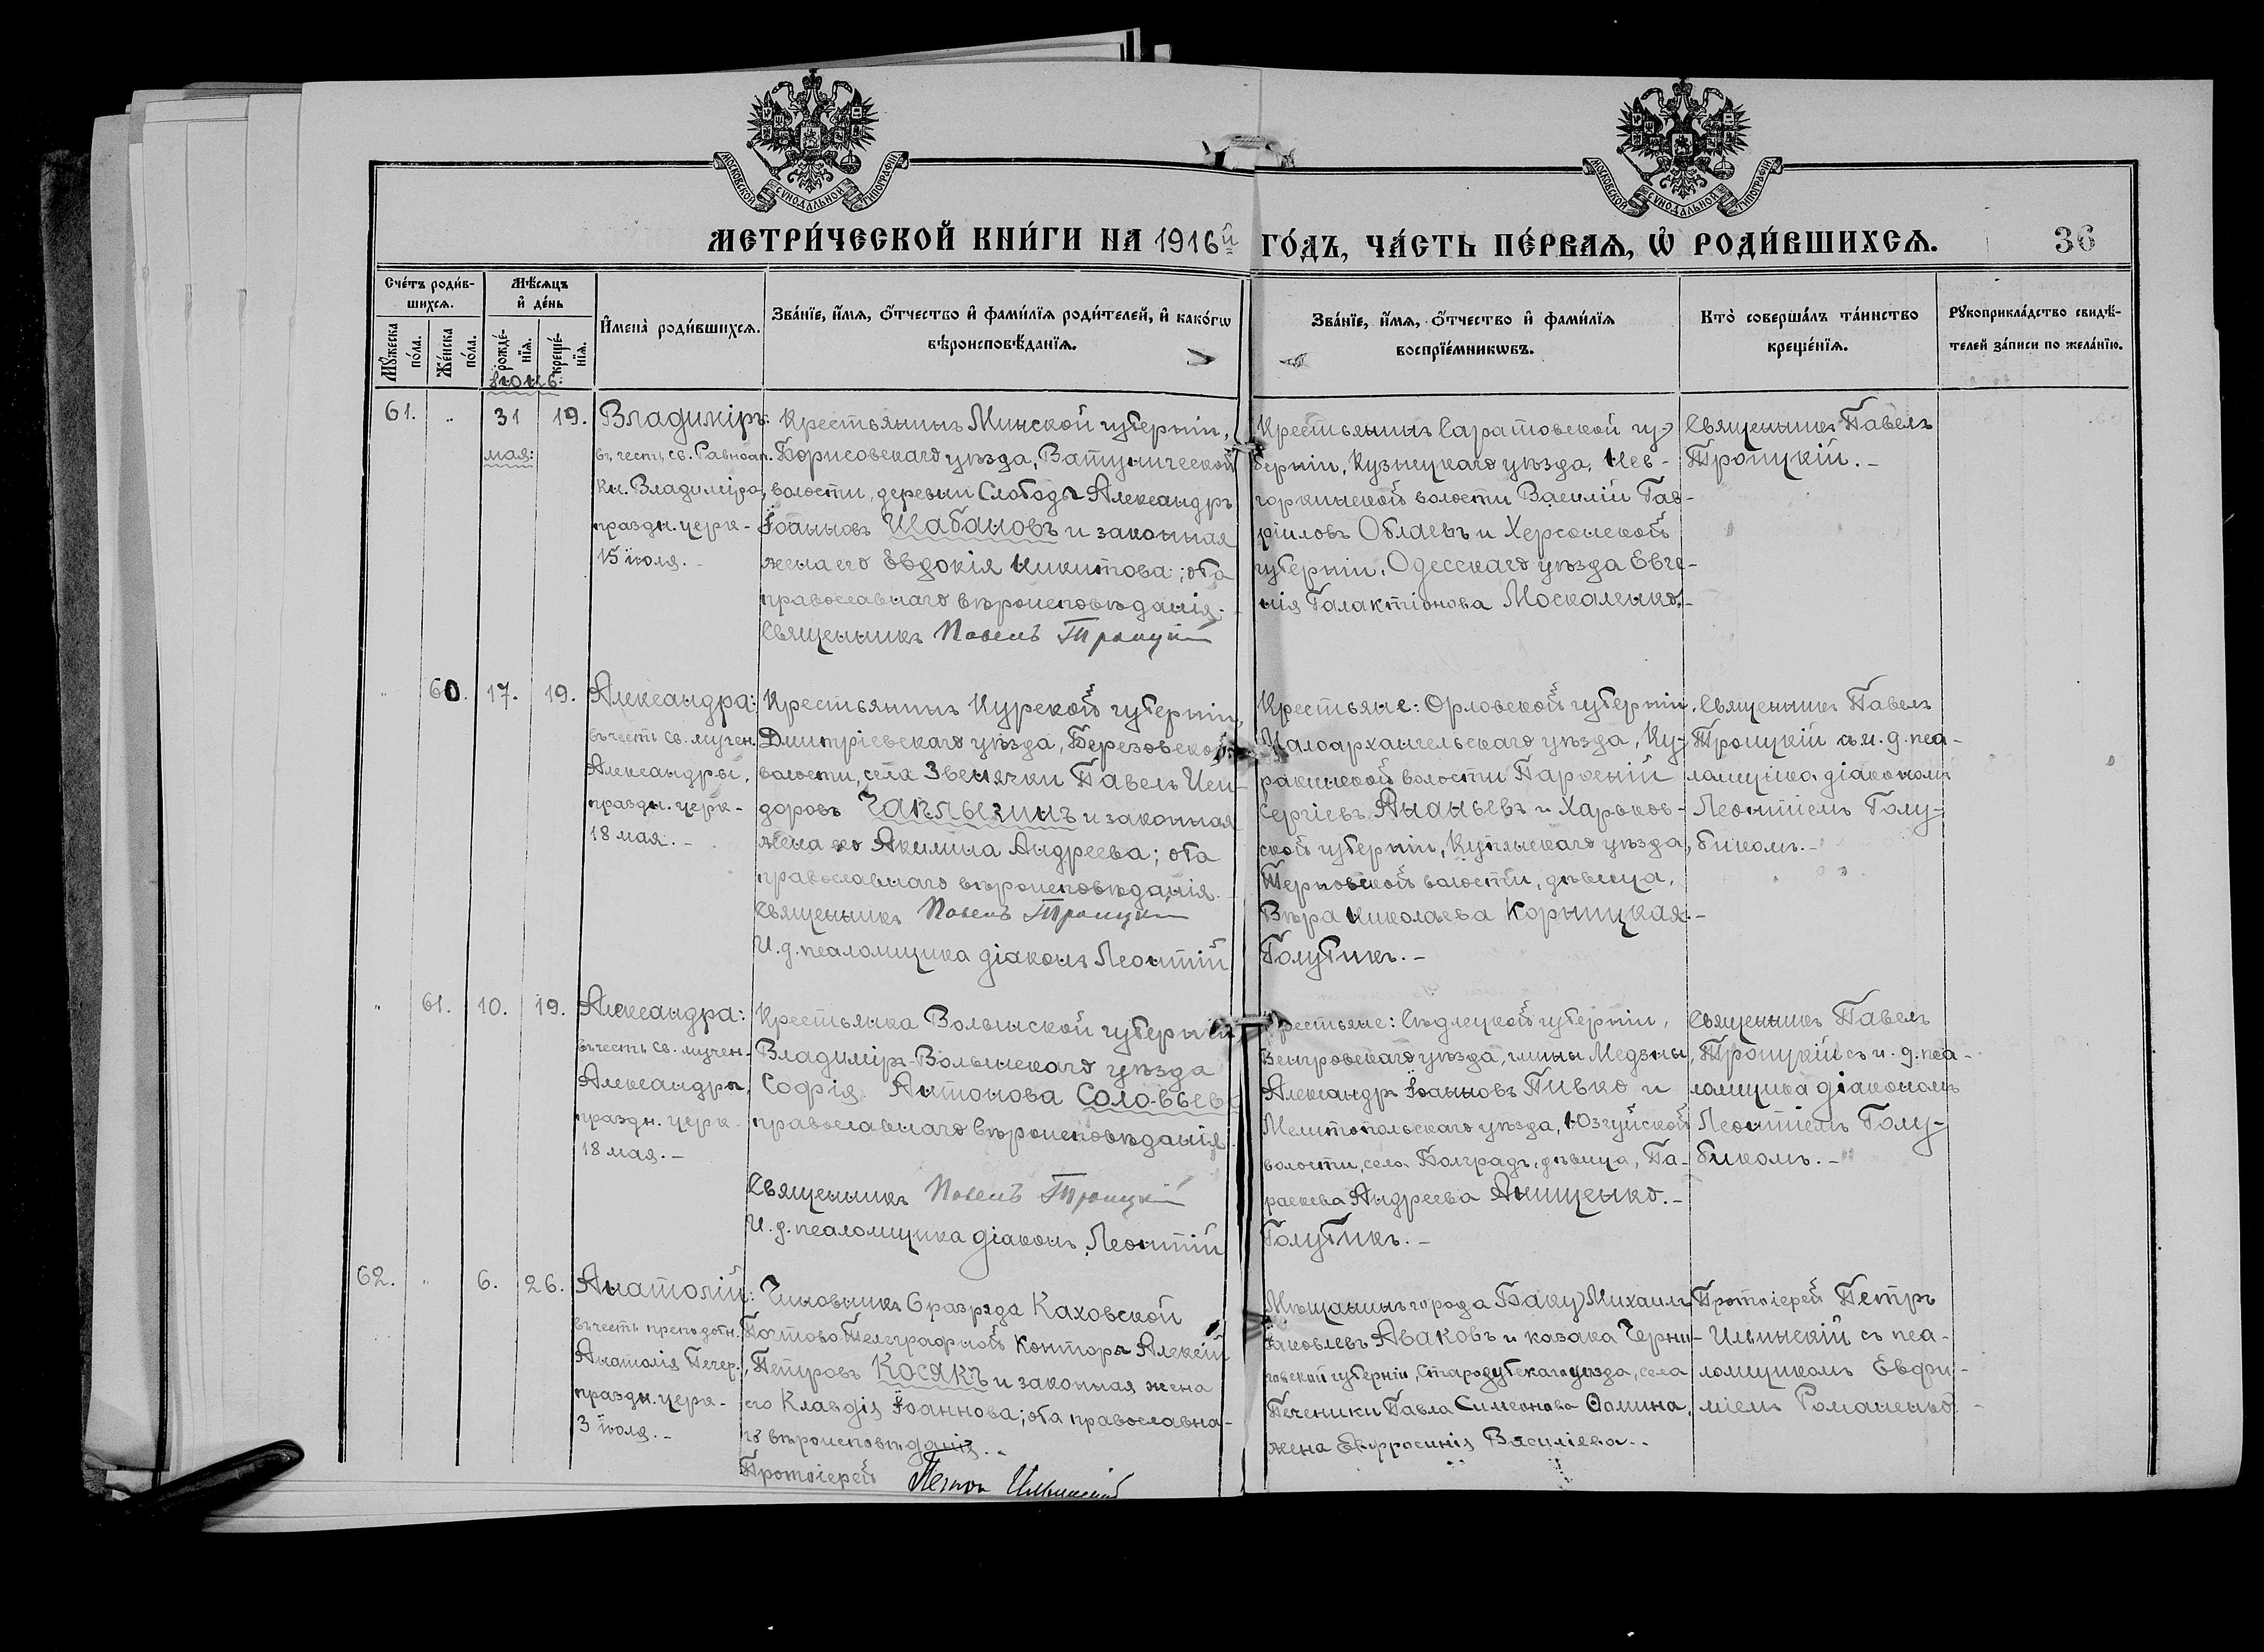 МОСКОВСКОЙ СѴНОДАЛЬНОЙ ТИПОГРАФІИ
МОСКОВСКОЙ СѴНОДАЛЬНОЙ ТИПОГРАФІИ
МЕТРИ́ЧЕСКОЙ КНИ́ГИ НА 1916й ГО́ДЪ, ЧА́СТЬ ПЕ́РВАѦ, Ѡ҆ РОДИ́ВШИХСѦ.
36
Сче́тъ роди́в-
шихсѧ.
Мꙋ́жеска
по́ла.
Же́нска
по́ла.
Мѣ́сѧцъ
и҆ де́нь
рожде́-
нїѧ.
креще́-
нїѧ.
И҆мена̀ роди́вшихсѧ.
Зва́нїе, и҆́мѧ, ѻ҆́тчество и҆ фами́лїѧ роди́телей, и҆ како́гѡ
вѣроисповѣ́данїѧ.
Зва́нїе, и҆́мѧ, ѻ҆́тчество и҆ фами́лїѧ
воспрїе́мникѡвъ.
Кто̀ соверша́лъ та́инство
креще́нїѧ.
Рꙋкоприкла́дство свидѣ́-
телей за́писи по жела́нїю.
61.
"
31
мая:
19.
Владиміръ:
въ честь св. Равноап.
Кн. Владиміра,
праздн. церк-
15 іюля. -
Крестьянинъ Минской губерніи,
Борисовскаго уѣзда,
волости, деревни Слободы Александръ
Іоанновъ Шабановъ и законная
жена его Евдокія Никитова; оба
православнаго вѣроисповѣданія. -
Священникъ Павелъ Троицкій
Крестьянинъ Саратовской гу-
берніи, Кузнецкаго уѣзда,
волости Василій Гав-
ріиловъ и Херсонской
губерніи, Одесскаго уѣзда Евге-
нія Галактіонова Москаленко. -
Священникъ Павелъ
Троицкій. -
"
60.
17.
19.
Александра:
въ честь св. мучен.
Александры,
праздн. церк-
18 мая. -
Крестьянинъ Курской губерніи,
Дмитріевскаго уѣзда, Березовской
волости, села Звенячки Павелъ Иси-
доровъ Чаплыгинъ и законная
жена его Акилина Андреева; оба
православнаго вѣроисповѣданія. -
Священникъ Павелъ Троицкій
И. д. псаломщика діаконъ Леонтій
Крестьяне: Орловской губерніи,
Малоархангельскаго уѣзда, Ку-
ракинской волости Парѳеній
Сергіевъ Ананьевъ и Харьков-
ской губерніи, Купянскаго уѣзда,
Терновской волости, дѣвица,
Вѣра Николаева Корницкая. -
Голубикъ. -
Священникъ Павелъ
Троицкій съ и. д. пса-
ломщика діакономъ
Леонтіемъ Голу-
бикомъ. -
"
61.
10.
19.
Александра:
въ честь св. мучен.
Александры,
праздн. церк-
18 мая. -
Крестьянка Волынской губерніи
Владиміръ-Волынскаго уѣзда
Софія Антонова Соловьева
православнаго вѣроисповѣданія.
Священникъ Павелъ Троицкій
И. д. псаломщика діаконъ Леонтій
Крестьяне: Сѣдлецкой губерніи,
Венгровскаго уѣзда, гмины Медзны,
Александръ Іоанновъ Пивко и
Мелитопольскаго уѣзда, Юзгуйской
волости, села Болградъ, дѣвица, Па-
раскева Андреева Анищенко. -
Голубикъ. -
Священникъ Павелъ
Троицкій съ и. д. пса-
ломщика діакономъ
Леонтіемъ Голу-
бикомъ. -
62.
"
6.
26.
Анатолій:
въ честь преподобн.
Анатолія Печер.,
праздн. церк-
3 іюля. -
Чиновникъ 6 разряда Каховской
Почтово-Телеграфной Конторы Алексій
Петровъ Косякъ и законная жена
его Клавдія Іоаннова; оба православна-
го вѣроисповѣданія. -
Протоіерей Петръ Ильинскій
Мѣщанинъ города Баку Михаилъ
Іаковлевъ Аваковъ и казака Черни-
говской губерніи, Стародубскаго уѣзда, села
Печеники Павла Симеонова Ѳомина,
жена Евфросинія Василіева. -
Протоіерей Петръ
Ильинскій съ пса-
ломщикомъ Евфи-
міемъ Романенко. -